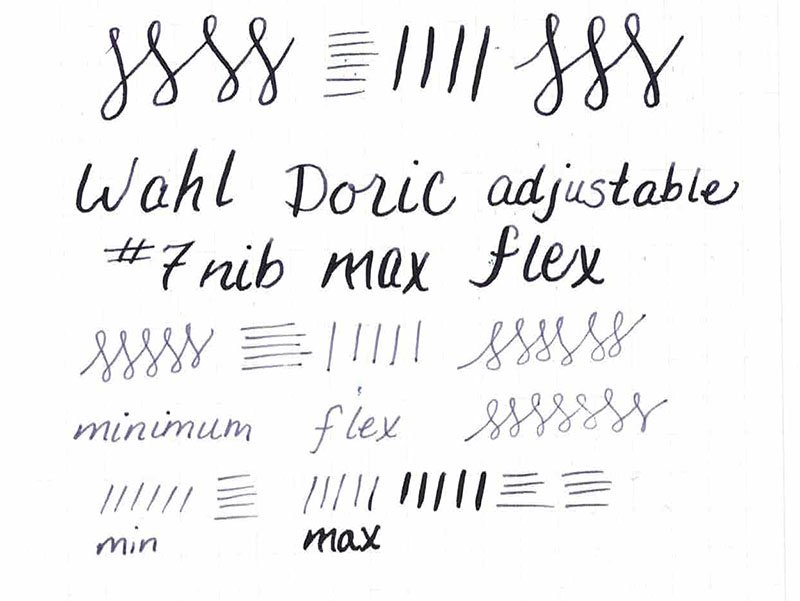 Wahl Doric adjustable
#7 nib max flex
minimum flex
min max